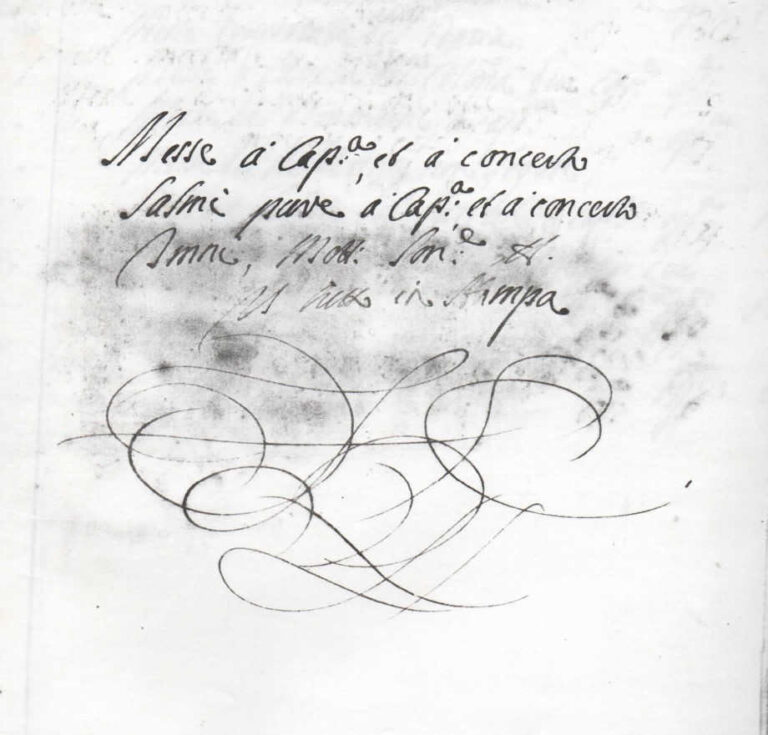 Messe à Cap.ª, et à concerto
Salmi pure à Cap.ª et à concerto
Inni, Mott: Son.e &.
in Stampa